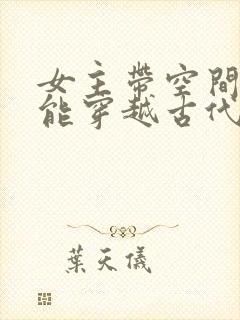 女主帶空間
能穿越古代
葉天儀